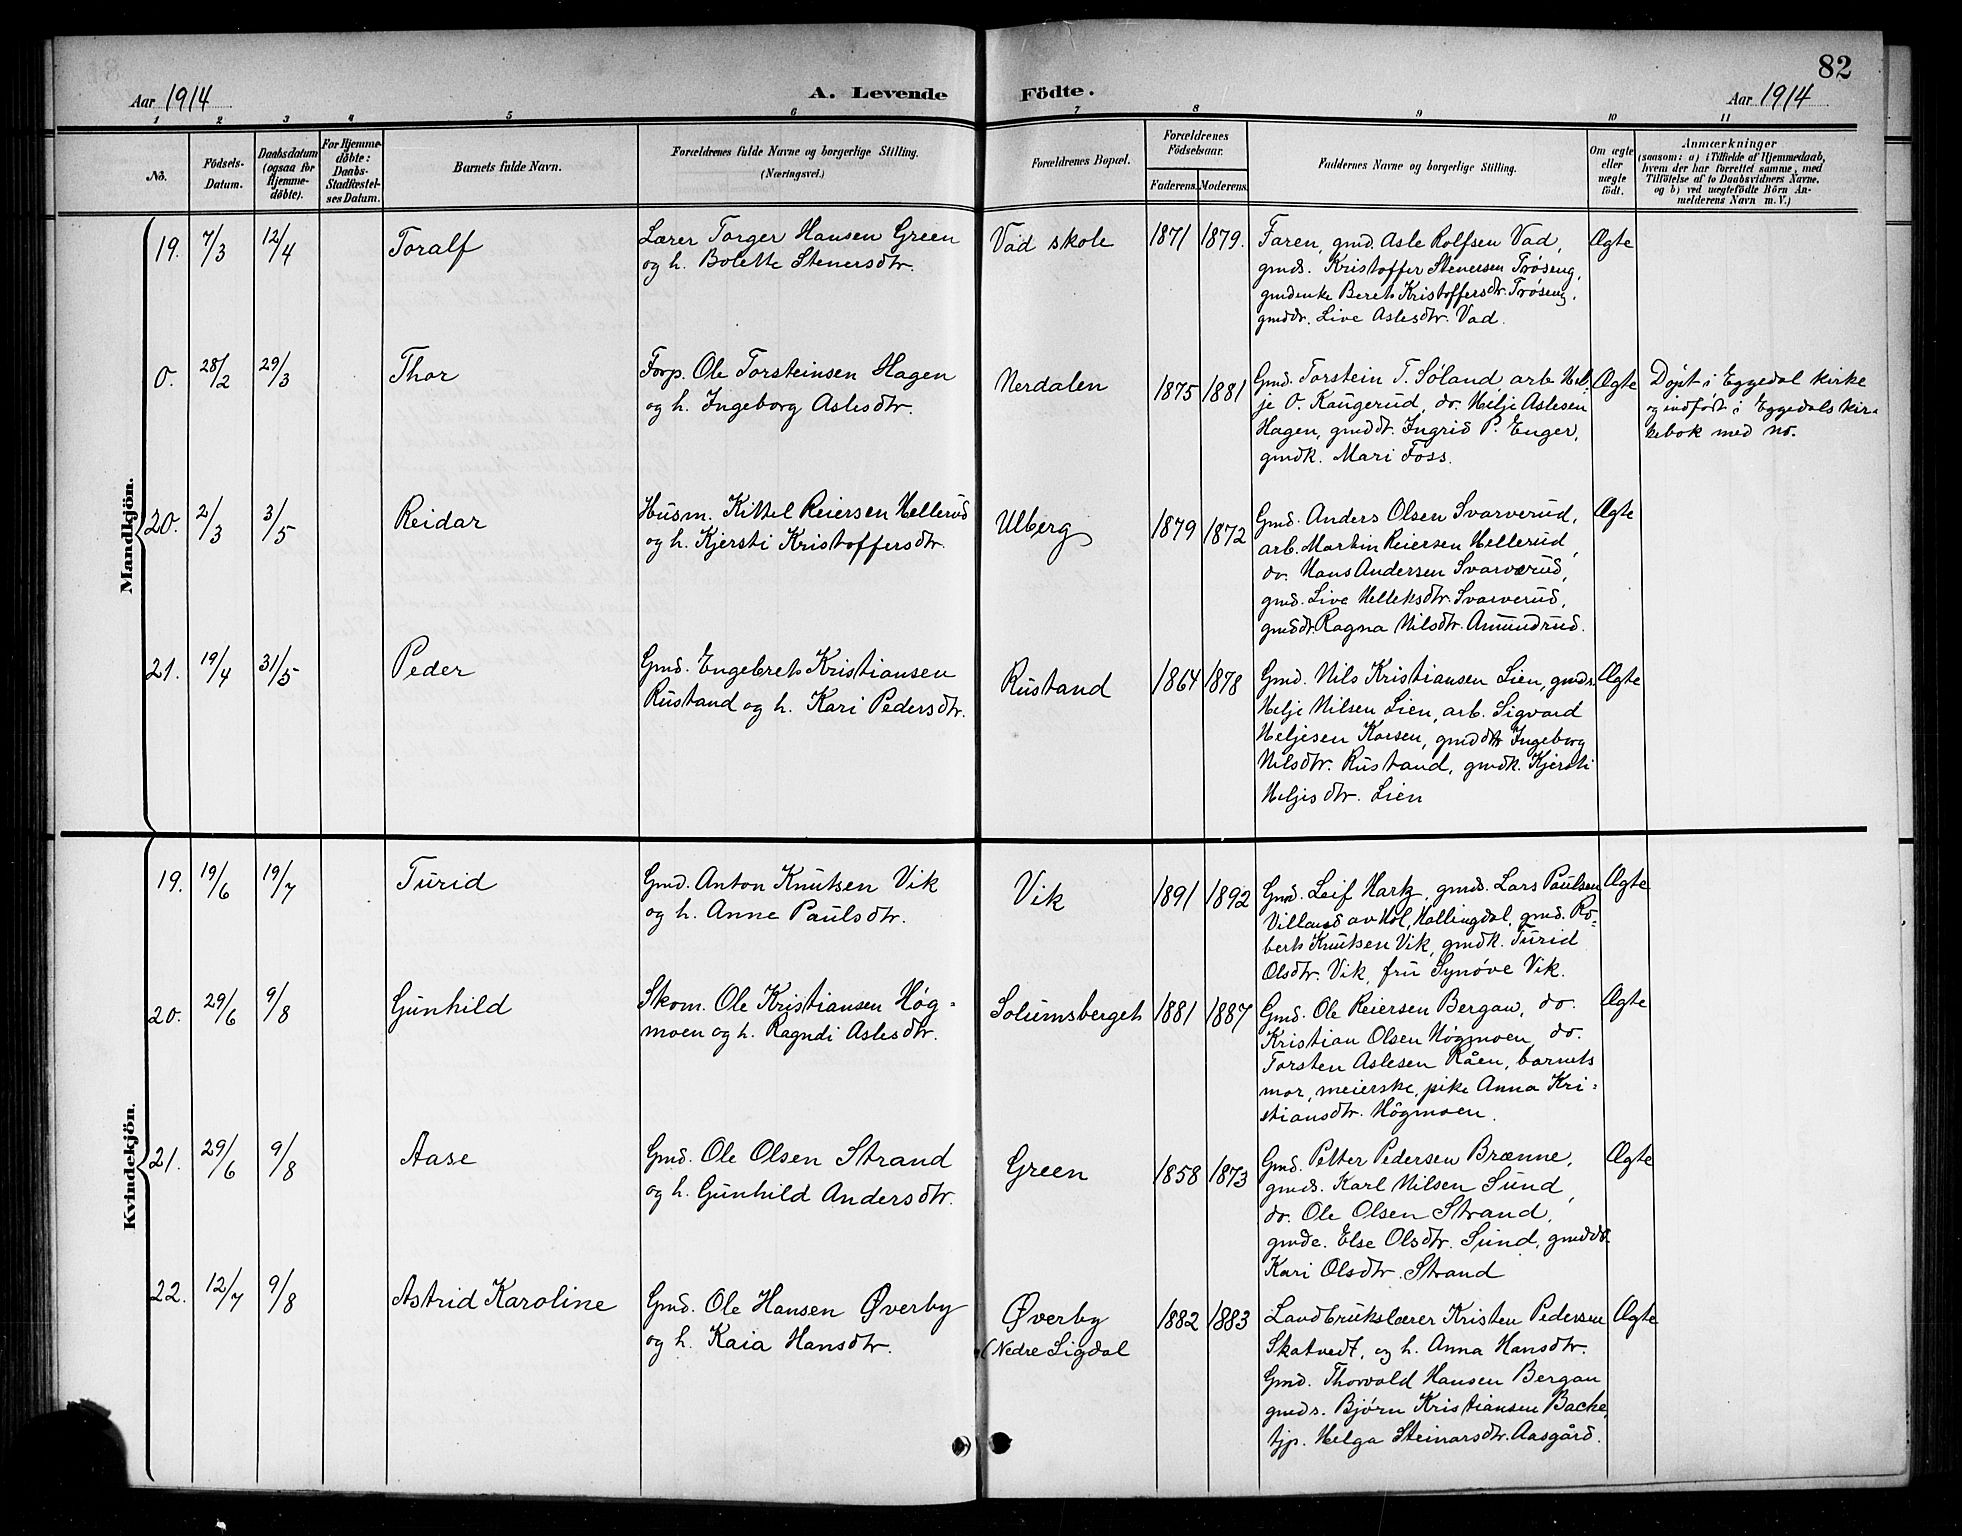 82
Aar 1914 A. Levende Födte. Aar 1914
1 2 3 4 5 6 7 8 9 10 11
No.
Födsels-
Datum.
Daabsdatum
(ogsaa for
Hjemme-
døbte).
For Hjemme-
døbte:
Daabs-
Stadfæstel-
ses Datum.
Barnets fulde Navn.
Forældrenes fulde Navne og borgerlige Stilling.
(Næringsvei.)
Forældrenes Bopæl.
Forældrenes
Födselsaar.
Faderens. Moderens.
Faddernes Navne og borgerlige Stilling.
Om ægte
eller
uægte
født.
Anmærkninger
(saasom: a) i Tilfælde af Hjemmedaab,
hvem der har forrettet samme, med
Tilføielse af to Daabsvidners Navne,
og b) ved uægtefödte Börn An-
melderens Navn m. V.)
Mandkjön.
19. 7/3 12/4 Toralf
Lærer Torger Hansen Green
og h. Bolette Stenersdtr.
Vad skole 1871 1879.
Faren, gmd. Asle Rolfsen Vad,
gmds. Kristoffer Stenersen Trøseng,
gmdenke Beret Kristoffersdtr. Trøseng,
gmddr. Live Aslesdtr. Vad.
Ægte
0. 28/2 29/3 Thor
Forp. Ole Torsteinsen Hagen
og h. Ingeborg Aslesdtr.
Nerdalen 1875 1881
Gmd. Torstein T. Søland, arb. Hel-
je O. Kaugerud, do. Helje Aslesen
Hagen, gmddt. Ingrid P. Enger,
gmdk. Mari Foss.
Ægte
Døpt i Eggedal kirke
og indført i Eggedals kir-
kebok med no.
20. 2/3 3/5 Reidar
Husm. Kittel Reiersen Hellerud
og h. Kjersti Kristoffersdtr.
Ulberg 1879 1872
Gmd. Anders Olsen Svarverud,
arb. Martin Reiersen Hellerud,
do. Hans Andersen Svarverud,
gmd. Live Helleksdtr. Svarverud,
gmddt. Ragna Nilsdtr. Amundrud.
Ægte
21. 19/4 31/5 Peder
Gmd. Engebret Kristiansen
Rustand og h. Kari Pedersdtr.
Rustand 1864 1878
Gmd. Nils Kristiansen Lien, gmds.
Helje Nilsen Lien, arb. Sigvard
Heljesen Korsen, gmddtr Ingeborg
Nilsdtr. Rustand, gmdk. Kjersti
Heljesdtr. Lien
Ægte
Kvindekjön.
19. 19/6 19/7 Turid
Gmd. Anton Knutsen Vik
og h. Anne Paulsdtr.
Vik 1891 1892
Gmd. Leif Hark, gmds. Lars Paulsen
Villand av Hol, Hallingdal, gmd. Ro-
bert Knutsen Vik, gmdk. Turid
Olsdtr. Vik, fru Synøve Vik.
Ægte
20. 29/6 9/8 Gunhild
Skom. Ole Kristiansen Høg-
moen og h. Ragndi Aslesdtr.
Solumsberget 1881 1887
Gmd. Ole Reiersen Bergan, do.
Kristian Olsen Høgmoen, do.
Torsten Aslesen Råen, barnets
mor, meierske, pike Anna Kri-
stiansdtr. Høgmoen.
Ægte
21. 29/6 9/8 Aase
Gmd. Ole Olsen Strand
og h. Gunhild Andersdtr.
Green 1858 1873
Gmd. Petter Pedersen Brænne,
gmds. Karl Nilsen Sund,
do. Ole Olsen Strand,
gmde. Else Olsdtr. Sund, gmddt.
Kari Olsdtr. Strand
Ægte
22. 12/7 9/8 Astrid Karoline
Gmd. Ole Hansen Øverby
og h. Kaia Hansdtr.
Øverby
(Nedre Sigdal
1882 1883
Landbrukslærer Kristen Pedersen
Skatvedt, og h. Anna Hansdtr.
Gmd. Thorvald Hansen Bergan
gmds. Bjørn Kristiansen Backe,
tjp. Helga Steinarsdtr. Aasgård.
Ægte